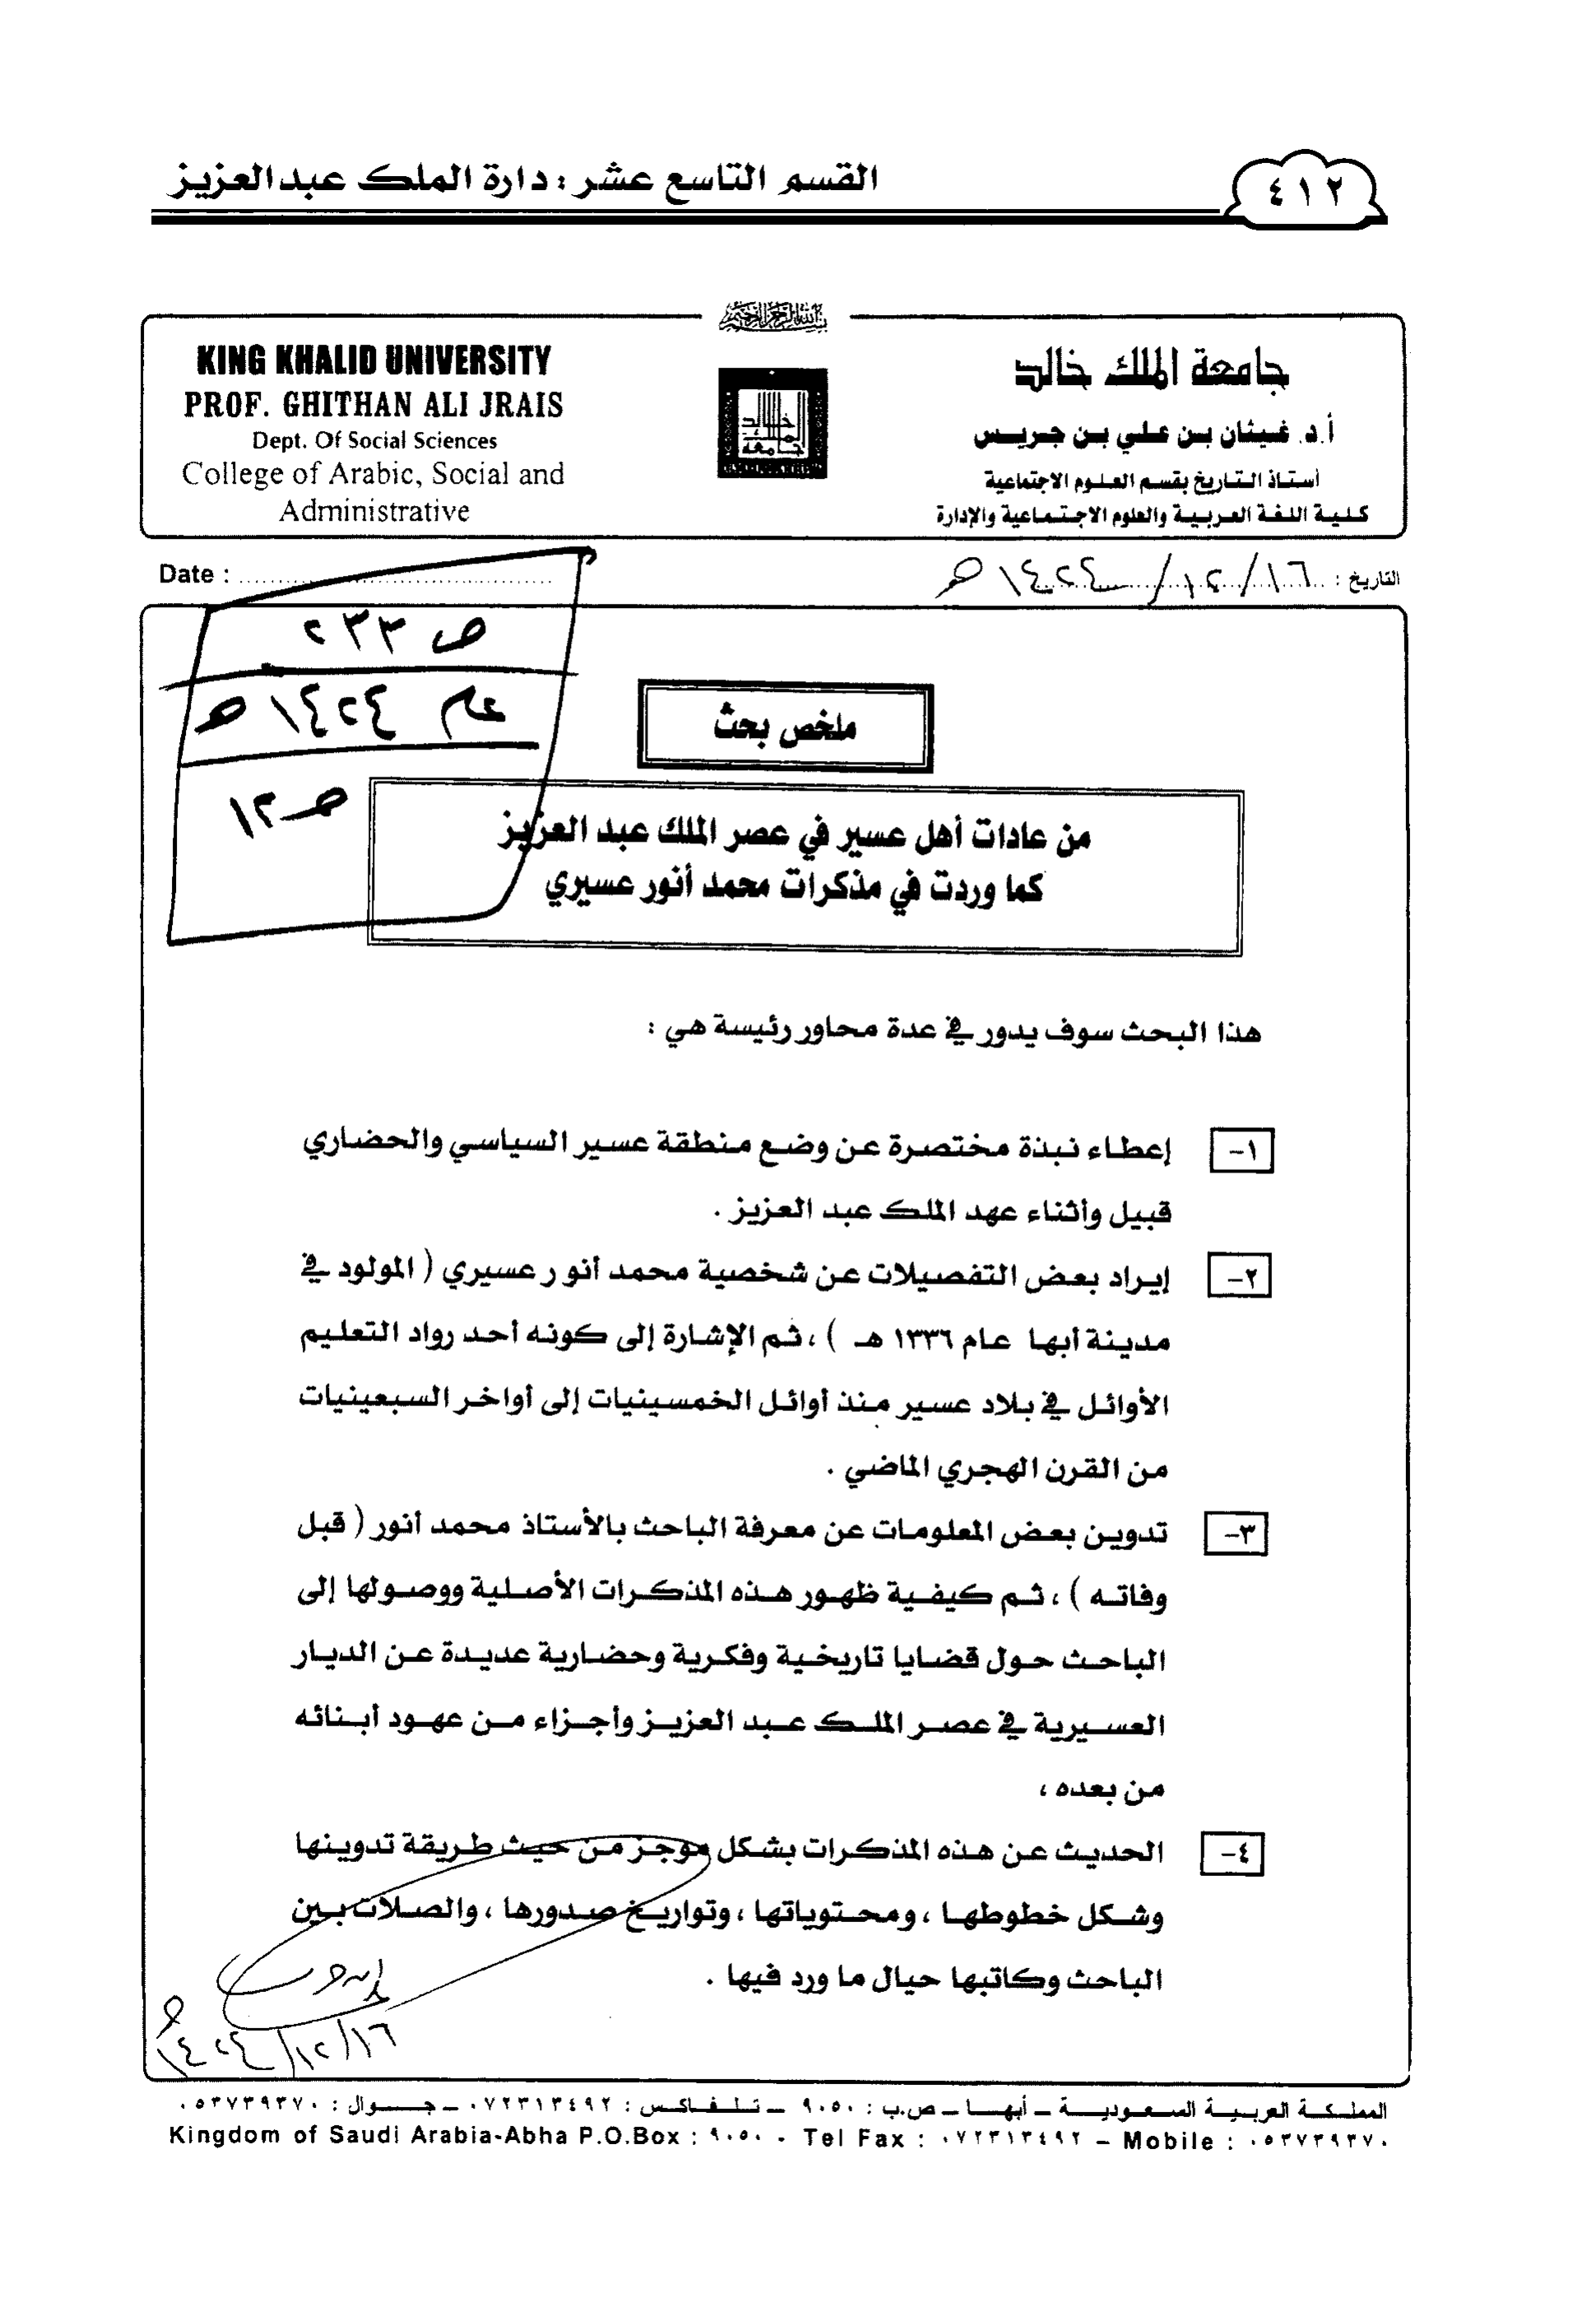 القسم التاسع عشر : دارة الملك عبدالعزيز
٤١٢
بسم الله الرحمن الرحيم
جامعة الملك خالد
أ.د. غيثان بن علي بن جريس
أستاذ التاريخ بقسم العلوم الاجتماعية
كلية اللغة العربية والعلوم الاجتماعية والإدارة
جامعة الملك خالد
KING KHALID UNIVERSITY
PROF. GHITHAN ALI JRAIS
Dept. Of Social Sciences
College of Arabic, Social and
Administrative
التاريخ : ١٦/١٢/١٤٢٤هـ
Date :
ص ٢٣٣
عام ١٤٢٤هـ
صـ١٢
ملخص بحث
من عادات أهل عسير في عصر الملك عبد العزيز
كما وردت في مذكرات محمد أنور عسيري
هذا البحث سوف يدور في عدة محاور رئيسة هي :
١- إعطاء نبذة مختصرة عن وضع منطقة عسير السياسي والحضاري
قبيل وأثناء عهد الملك عبد العزيز .
٢- إيراد بعض التفصيلات عن شخصية محمد أنور عسيري ( المولود في
مدينة أبها عام ١٣٣٦ هـ ) ، ثم الإشارة إلى كونه أحد رواد التعليم
الأوائل في بلاد عسير منذ أوائل الخمسينيات إلى أواخر السبعينيات
من القرن الهجري الماضي .
٣- تدوين بعض المعلومات عن معرفة الباحث بالأستاذ محمد أنور ( قبل
وفاته ) ، ثم كيفية ظهور هذه المذكرات الأصلية ووصولها إلى
الباحث حول قضايا تاريخية وفكرية وحضارية عديدة عن الديار
العسيرية في عصر الملك عبد العزيز وأجزاء من عهود أبنائه
من بعده ،
٤- الحديث عن هذه المذكرات بشكل موجز من حيث طريقة تدوينها
وشكل خطوطها ، ومحتوياتها ، وتواريخ صدورها ، والصلات بين
الباحث وكاتبها حيال ما ورد فيها .
١٦/١٢/١٤٢٤هـ
المملكة العربية السعودية – أبها – ص.ب : ٩٠٥٠ – تلفاكس : ٠٧٢٣١٣٤٩٢ – جوال : ٠٥٣٧٣٩٣٧٠
Kingdom of Saudi Arabia-Abha P.O.Box : ٩٠٥٠ - Tel Fax : ٠٧٢٣١٣٤٩٢ – Mobile : ٠٥٣٧٣٩٣٧٠